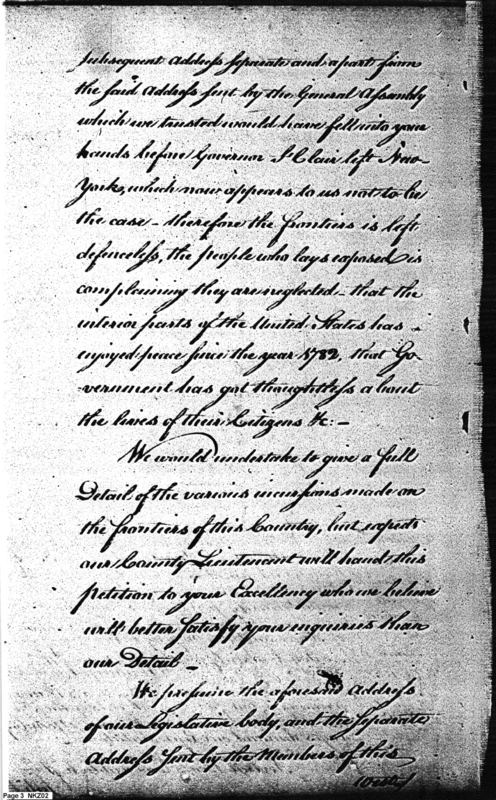 subsequent Address separate and apart from
the said Address sent by the General Assembly
which we trusted would have fell into your
hands before Governor St Clair left New-
York, which now appears to us not to be
the case - therefore the frontiers is left
defenceless, the people who lays exposed is
complaining they are neglected - that the
interior parts of the United States has
enjoyed peace since the year 1782, that Go-
vernment has got thoughtless about
the lives of their Citizens &c: -
We would undertake to give a full
Detail of the various incursions made on
the frontiers of this Country, but expects
our County Lieutenent will hand this
petition to your Excellency who we believe
will better satisfy your enquiries than
our Detail -
We presume the aforesaid Address
of our Legislative body, and the separate
Address sent by the Members of this
Page 3 NKZ02